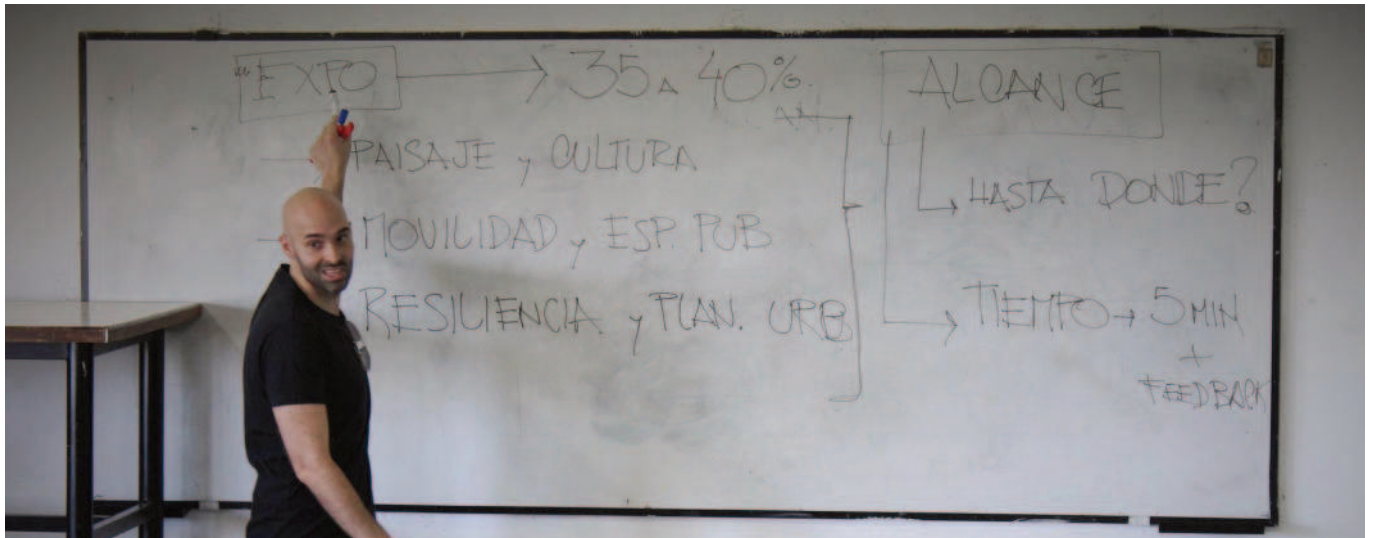 "EXPO → 35 A 40%
PAISAJE y CULTURA
MOVILIDAD y ESP. PUB
RESILIENCIA y PLAN. URB
ALCANCE
HASTA DONDE?
TIEMPO → 5 MIN
+
FEEDBACK